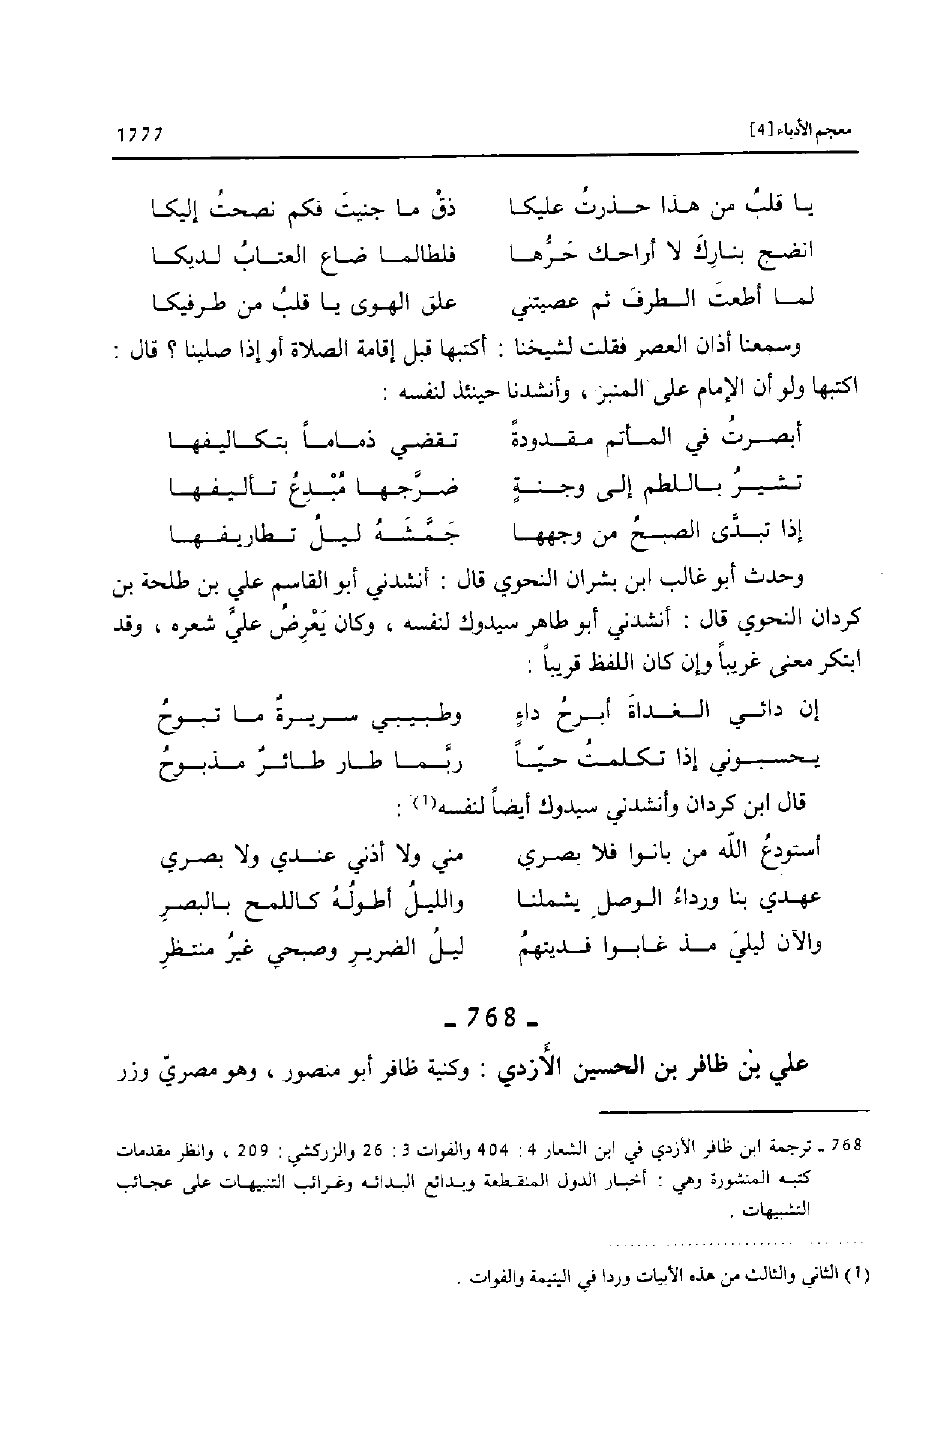 معجم الأدباء [4] 1777
يا قلبُ من هذا حذرتُ عليكا ذقْ ما جنيتَ فكم نصحتُ إليكا
انضج بناركَ لا أراحك حَرُّها فلطالما ضاع العتابُ لديكا
لما أطعتَ الطرفَ ثم عصيتني علق الهوى يا قلبُ من طرفيكا
وسمعنا أذان العصر فقلت لشيخنا : أكتبها قبل إقامة الصلاة أو إذا صلينا ؟ قال :
اكتبها ولو أن الإمام على المنبر ، وأنشدنا حينئذ لنفسه :
أبصرتُ في المأتم مقدودةً تقضي ذماماً بتكاليفها
تشيرُ باللطم إلى وجنةٍ ضرَّجها مُبْدِعُ تأليفها
إذا تبدَّى الصبحُ من وجهها جَمَّشَهُ ليلُ تطاريفها
وحدث أبو غالب ابن بشران النحوي قال : أنشدني أبو القاسم علي بن طلحة بن
كردان النحوي قال : أنشدني أبو طاهر سيدوك لنفسه ، وكان يَعْرِضُ عليَّ شعره ، وقد
ابتكر معنى غريباً وإن كان اللفظ قريباً :
إن دائي الغداةَ أبرحُ داءٍ وطبيبي سريرةٌ ما تبوحُ
يحسبوني إذا تكلمتُ حيّاً ربَّما طار طائرٌ مذبوحُ
قال ابن كردان وأنشدني سيدوك أيضاً لنفسه(1) :
أستودعُ اللّه من بانوا فلا بصري مني ولا أذني عندي ولا بصري
عهدي بنا ورداءُ الوصلِ يشملنا والليلُ أطولُهُ كاللمح بالبصرِ
والآن ليليَ مذ غابوا فديتهمُ ليلُ الضرير وصبحي غيرُ منتظرِ
ـ 768 ـ
علي بن ظافر بن الحسين الأَزدي : وكنية ظافر أبو منصور ، وهو مصريّ وزر
768 ـ ترجمة ابن ظافر الأزدي في ابن الشعار 4 : 404 والفوات 3 : 26 والزركشي : 209 ، وانظر مقدمات
كتبه المنشورة وهي : أخبار الدول المنقطعة وبدائع البدائه وغرائب التنبيهات على عجائب
التشبيهات .
(1) الثاني والثالث من هذه الأبيات وردا في اليتيمة والفوات .